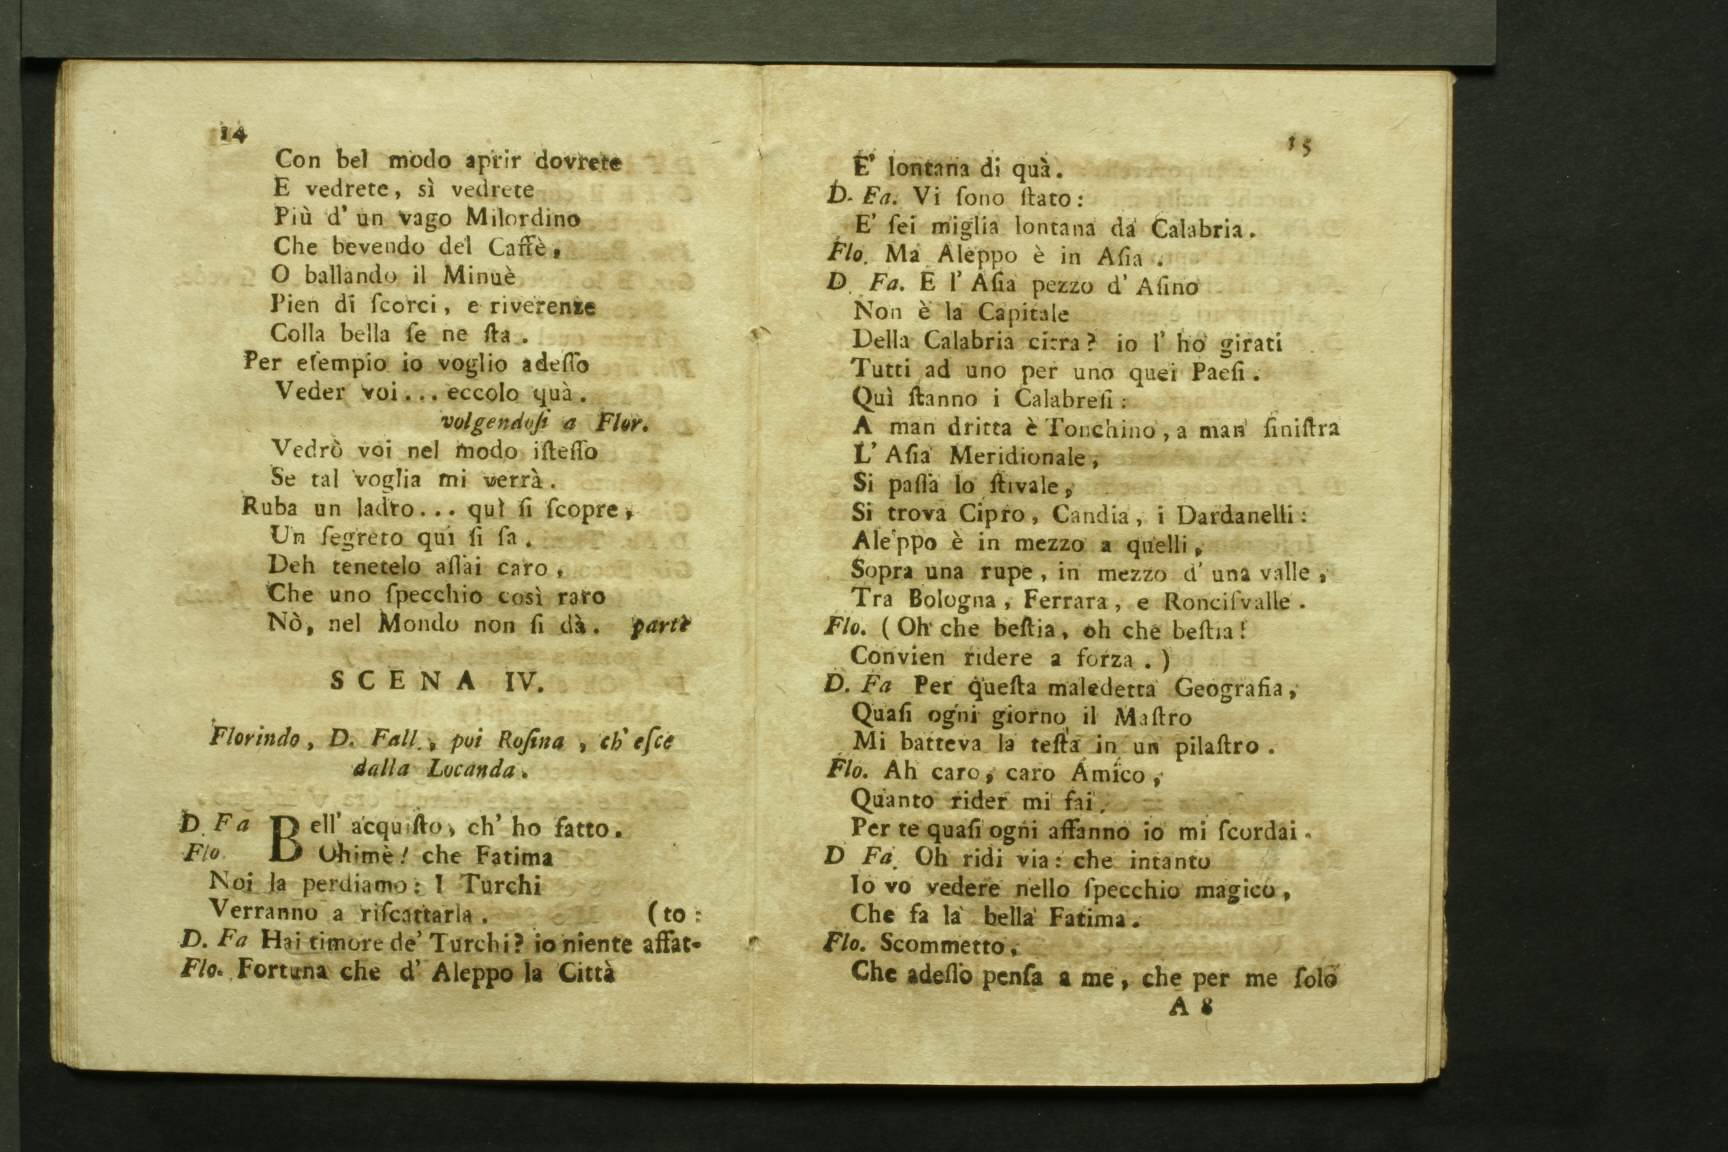 14
Con bel modo aprir dovrete
E vedrete, sì vedrete
Più d' un vago Milordino
Che bevendo del Caffè,
O ballando il Minuè
Pien di ſcorci, e riverenze
Colla bella ſe ne ſta.
Per eſempio io voglio adeſſo
Veder voi... eccolo quà.
volgendoſi a Flor.
Vedrò voi nel modo iſteſſo
Se tal voglia mi verrà.
Ruba un ladro... quì ſi ſcopre,
Un ſegreto quì ſi ſa.
Deh tenetelo aſſai caro,
Che uno ſpecchio così raro
Nò, nel Mondo non ſi dà. parte
SCENA IV.
Florindo, D. Fall., poi Roſina, ch' eſce
dalla Locanda.
D. Fa Bell' acquiſto, ch' ho fatto.
Flo. Ohimè! che Fatima
Noi la perdiamo: I Turchi
Verranno a riſcattarla. (to:
D. Fa Hai timore de' Turchi? io niente affat-
Flo. Fortuna che d' Aleppo la Città
15
E' lontana di quà.
D. Fa. Vi ſono ſtato:
E' ſei miglia lontana da Calabria.
Flo. Ma Aleppo è in Aſia.
D. Fa. E l' Aſia pezzo d' Aſino
Non è la Capitale
Della Calabria citra? io l' ho girati
Tutti ad uno per uno quei Paeſi.
Quì ſtanno i Calabreſi:
A man dritta è Tonchino, a man ſiniſtra
L' Aſia Meridionale,
Si paſſa lo ſtivale,
Si trova Cipro, Candia, i Dardanelli:
Aleppo è in mezzo a quelli,
Sopra una rupe, in mezzo d' una valle,
Tra Bologna, Ferrara, e Ronciſvalle.
Flo. (Oh che beſtia, oh che beſtia!
Convien ridere a forza.)
D. Fa Per queſta maledetta Geografia,
Quaſi ogni giorno il Maſtro
Mi batteva la teſta in un pilaſtro.
Flo. Ah caro, caro Amico,
Quanto rider mi fai,
Per te quaſi ogni affanno io mi ſcordai.
D Fa. Oh ridi via: che intanto
Io vo vedere nello ſpecchio magico,
Che fa la bella Fatima.
Flo. Scommetto,
Che adeſſo penſa a me, che per me ſolo
A 8